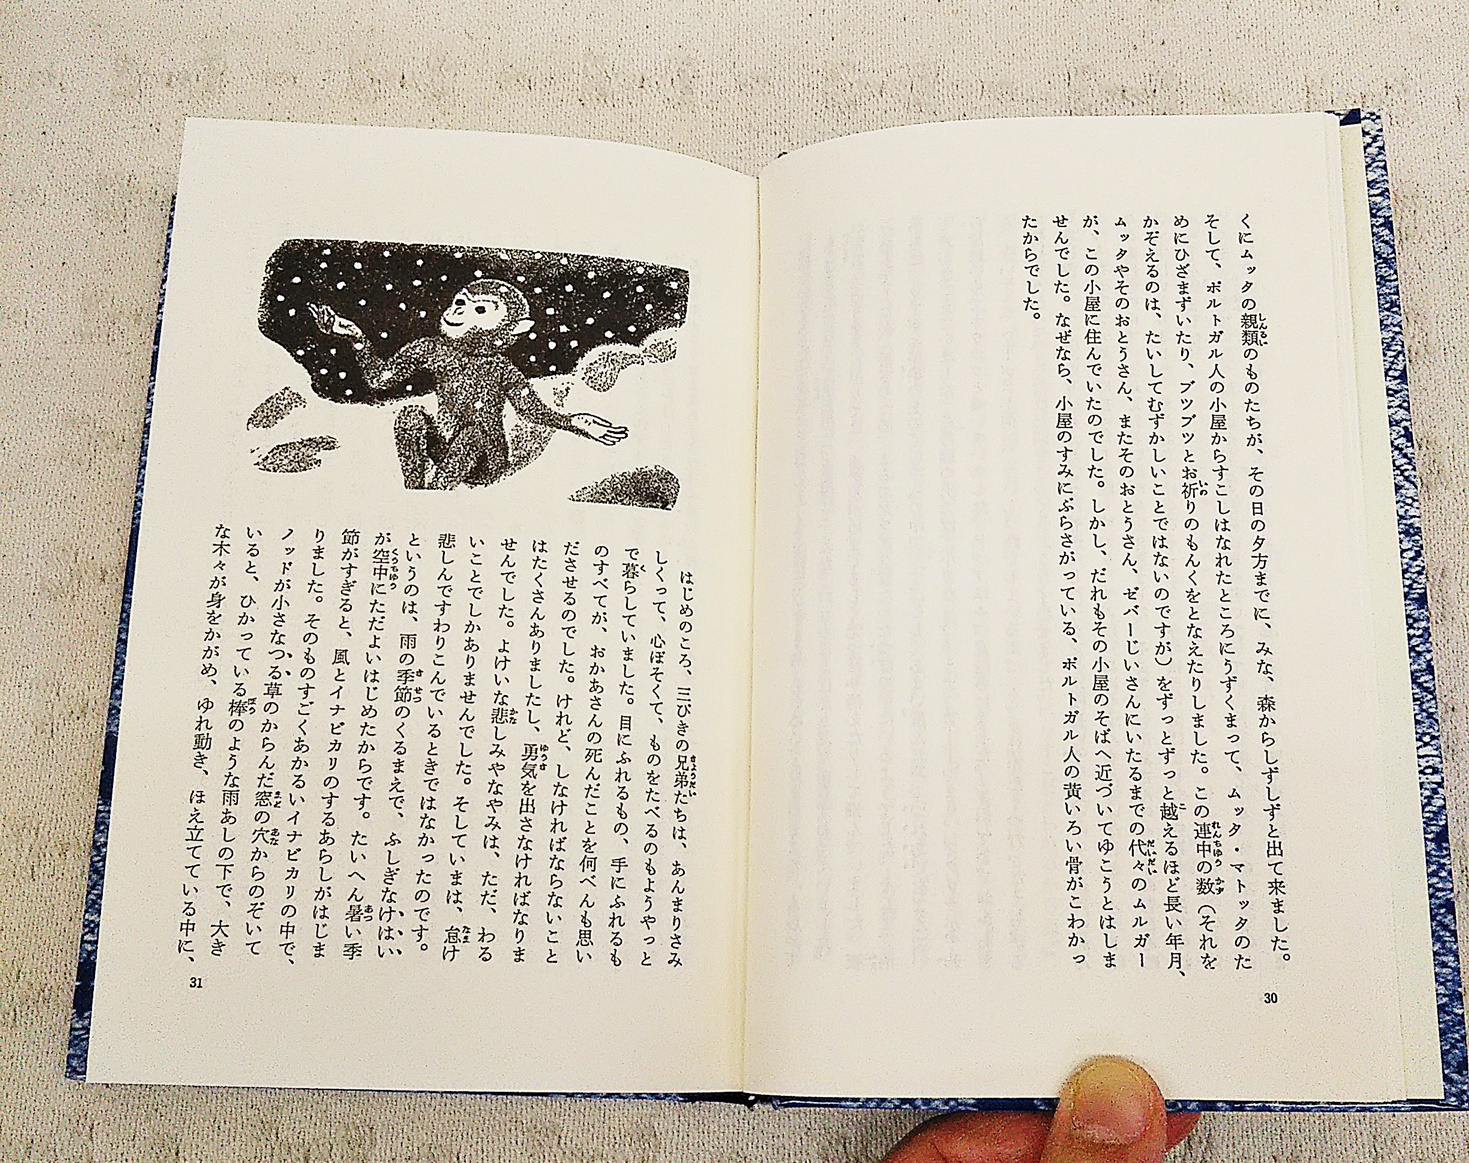 くにムッタの親類のものたちが、その日の夕方までに、みな、森からしずしずと出て来ました。
そして、ポルトガル人の小屋からすこしはなれたところにうずくまって、ムッタ・マトゥッタのた
めにひざまずいたり、ブツブツとお祈りのもんくをとなえたりしました。この連中の数(それを
かぞえるのは、たいしてむずかしいことではないのですが)をずっとずっと越えるほど長い年月、
ムックやそのおとうさん、またそのおとうさん、ゼバーじいさんにいたるまでの代々のムルガー
が、この小屋に住んでいたのでした。しかし、だれもその小屋のそばへ近づいてゆこうとはしま
せんでした。なぜなら、小屋のすみにぶらさがっている、ポルトガル人の黄いろい骨がこわかっ
たからでした。
30
はじめのころ、三びきの兄弟たちは、あんまりさみ
しくって、心ぼそくて、ものをたべるのもようやっと
で暮らしていました。目にふれるもの、手にふれるも
のすべてが、おかあさんの死んだことを何べんも思い
ださせるのでした。けれど、しなければならないこと
はたくさんありましたし、勇気を出さなければなりま
せんでした。よけいな悲しみやなやみは、ただ、わる
いことでしかありませんでした。そしていまは、怠け
悲しんですわりこんでいるときではなかったのです。
というのは、雨の季節のくるまえで、ふしぎなけはい
が空中にただよいはじめたからです。たいへん暑い季
節がすぎると、風とイナビカリのするあらしがはじま
りました。そのものすごくあかるいイナビカリの中で、
ノッドが小さなつる草のからんだ窓の穴からのぞいて
いると、ひかっている棒のような雨あしの下で、大き
な木々が身をかがめ、ゆれ動き、ほえ立てている中に、
31